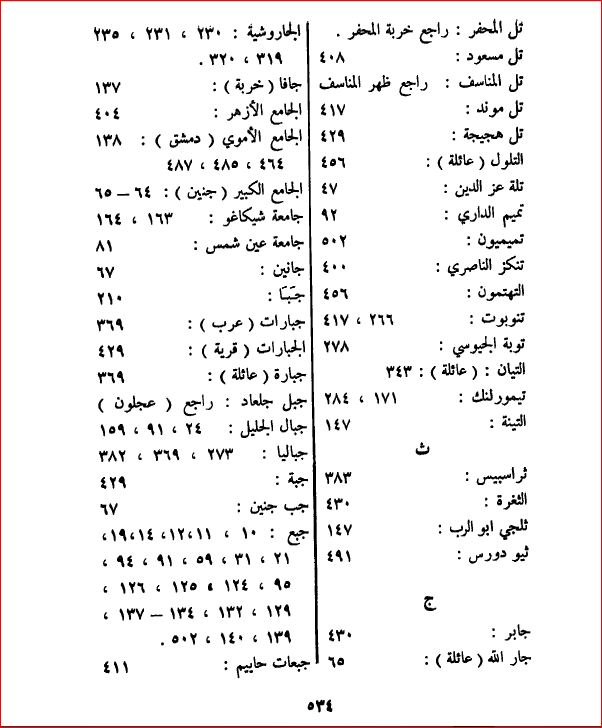 تل المحفر : راجع خربة المحفر .
تل مسعود : ٤٠٨
تل المناسف : راجع ظهر المناسف
تل موند : ٤١٧
تل هجيجة : ٤٢٩
التلول ( عائلة ) : ٤٥٦
تلة عز الدين : ٤٧
تميم الداري : ٩٢
تميميون : ٥٠٢
تنكز الناصري : ٤٠٠
التهتمون : ٤٥٦
تنوبوت : ٢٦٦ ، ٤١٧
توبة الجيوسي : ٢٧٨
التيان : ( عائلة ) : ٣٤٣
تيمورلنك : ١٧١ ، ٢٨٤
التينة : ١٤٧
ث
ثراسبيس : ٣٨٣
الثغرة : ٤٣٠
ثلجي ابو الرب : ١٤٧
ثيو دورس : ٤٩١
ج
جابر : ٤٣٠
جار الله ( عائلة ) : ٦٥
الجاروشية : ٢٣٠ ، ٢٣١ ، ٢٣٥
، ٣١٩ ، ٣٢٠ .
جافا ( خربة ) : ١٣٧
الجامع الأزهر : ٤٠٤
الجامع الأموي ( دمشق ) : ١٣٨
٤٦٤ ، ٤٨٥ ، ٤٨٧
الجامع الكبير ( جنين ) : ٦٤ – ٦٥
جامعة شيكاغو : ١٦٣ ، ١٦٤
جامعة عين شمس : ٨١
جانين : ٦٧
جَبَتَا : ٢١٠
جبارات ( عرب ) : ٣٦٩
الجبارات ( قرية ) : ٤٢٩
جبارة ( عائلة ) : ٣٦٩
جبل جلعاد : راجع ( عجلون )
جبال الجليل : ٢٤ ، ٩١ ، ١٥٩
جباليا : ٢٧٣ ، ٣٦٩ ، ٣٨٢
جبة : ٤٢٩
جب جنين : ٦٧
جبع : ١٠ ، ١١،١٢،١٤،١٩،
٢١ ، ٣١ ، ٥٩ ، ٩١ ، ٩٤ ،
٩٥ ، ١٢٤ ، ١٢٥ ، ١٢٦ ،
١٢٩ ، ١٣٢ ، ١٣٤ – ١٣٧ ،
١٣٩ ، ١٤٠ ، ٥٠٢ .
جبعات حاييم : ٤١١
٥٣٤